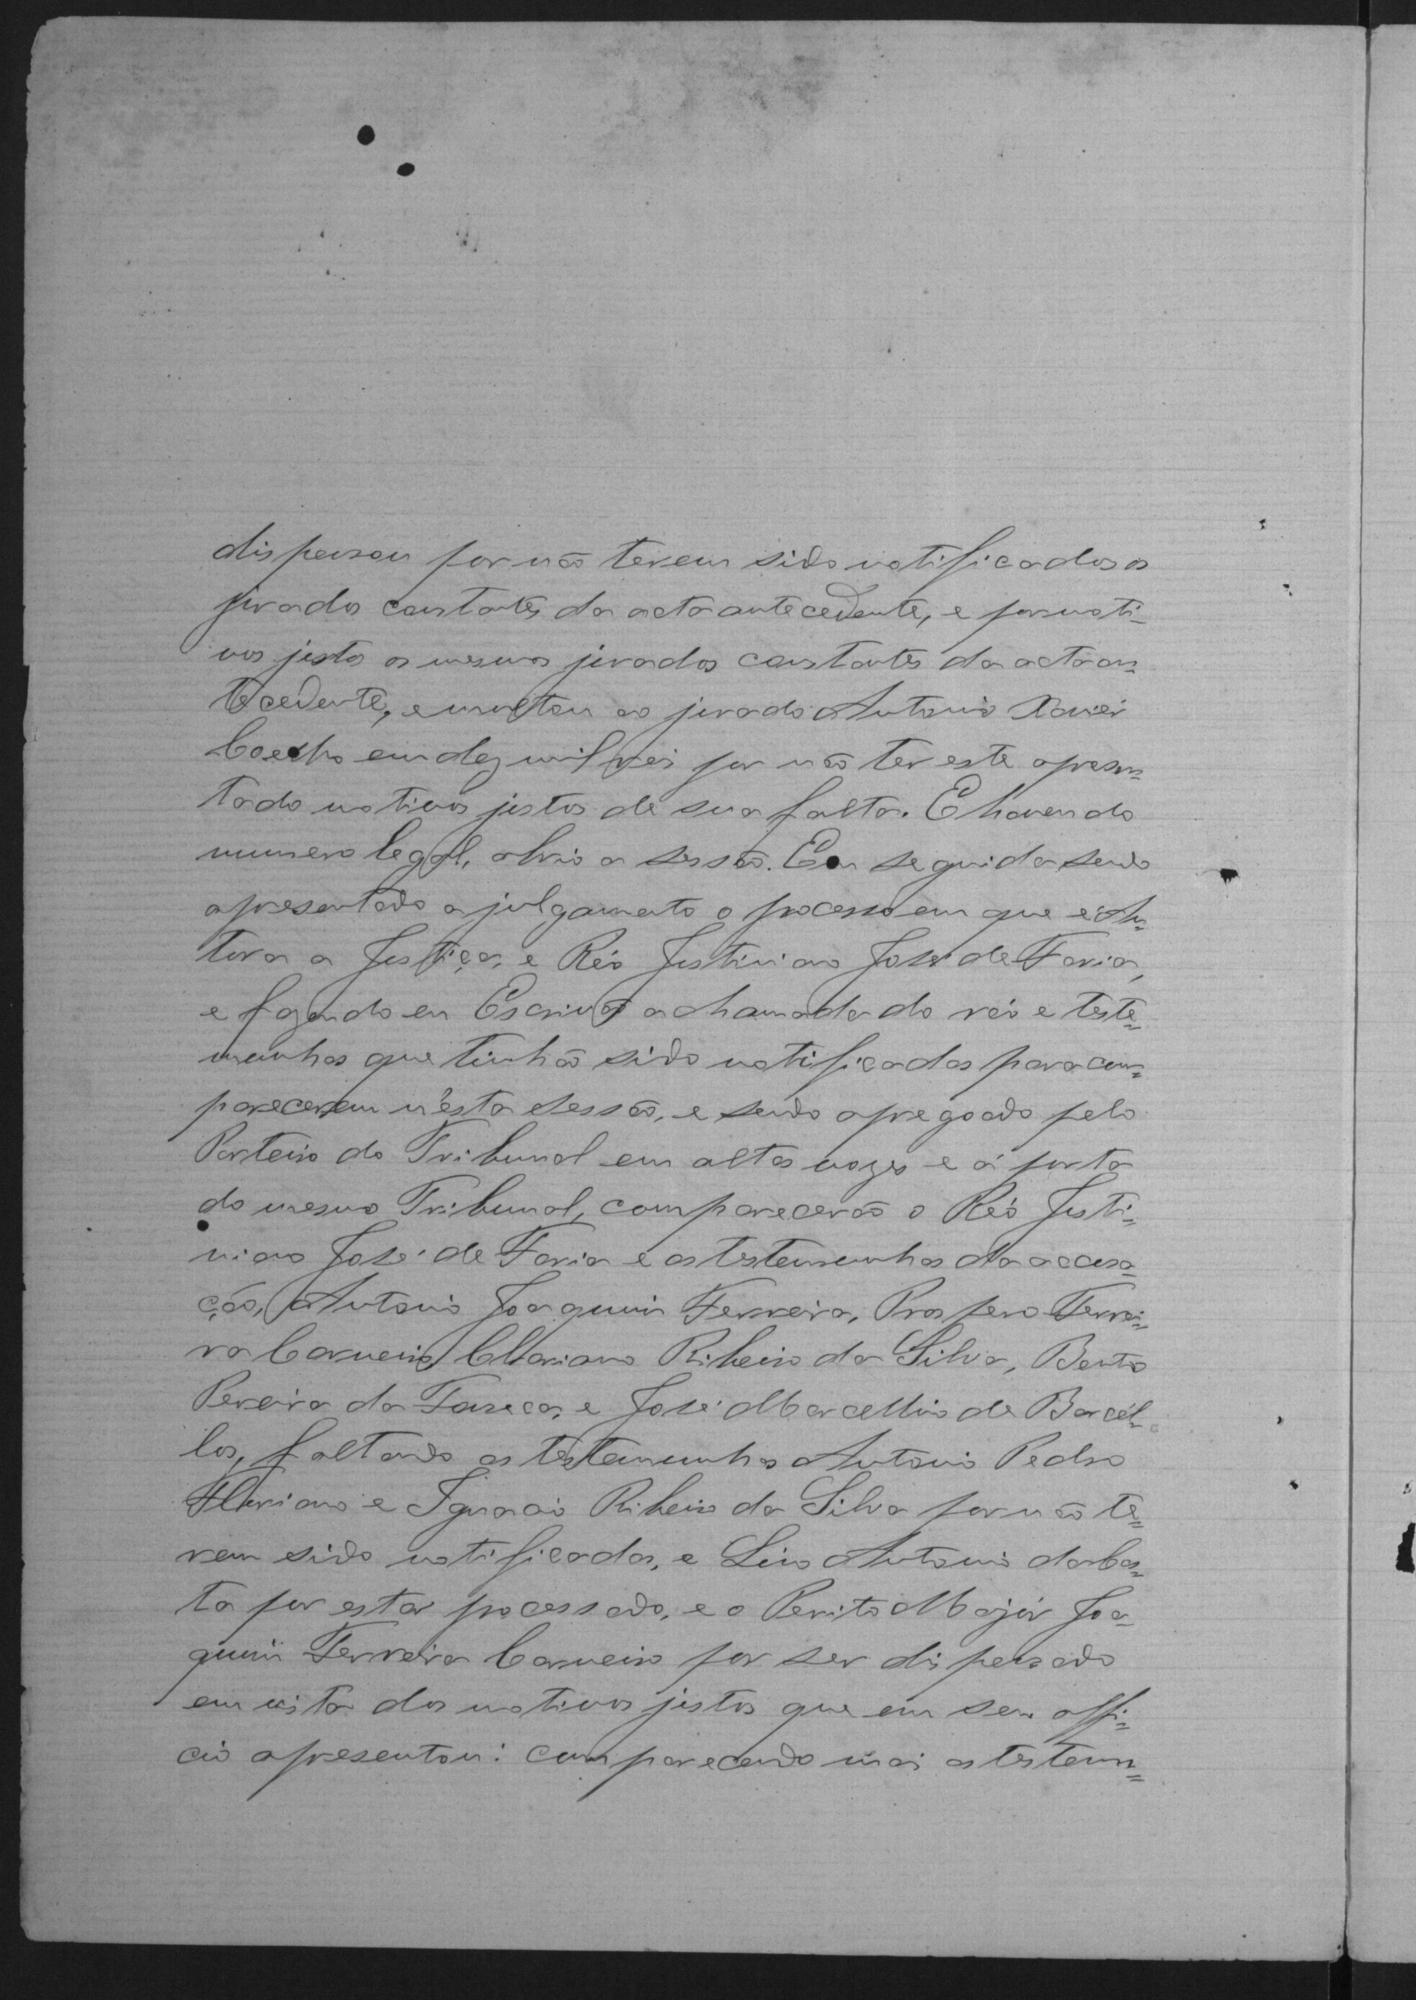 dispensou por não terem sido notificados os
jurados constantes da acta antecedente, e por moti-
vos justos os mesmos jurados constantes da acta an-
tecedente, e multou ao jurado Antonio Xavier
Coelho em dez mil reis por não ter este apresen-
tado motivos justos de sua falta. E havendo
numero legal, abrio a sessão. Em seguida sendo
apresentado a julgamento o processo em que é Au-
tora a Justiça, e Réo Justiniano José de Faria,
e fazendo eu Escrivão a chamada do réo e teste-
munhas que tinhão sido notificadas para com-
parecerem n'esta sessão, e sendo apregoado pelo
Porteiro do Tribunal em altas vozes e á porta
do mesmo Tribunal, comparecerão o Réo Justi-
niano José de Faria e as testemunhas da accusa-
ção, Antonio Joaquim Ferreira, Prospero Ferrei-
ra Carneiro, Mariano Ribeiro da Silva, Bento
Pereira da Fonseca, e José Marcellino de Barcel-
los, faltando as testemunhas Antonio Pedro
Floriano e Ignacio Ribeiro da Silva por não te-
rem sido notificadas, e Lino Antonio da Cos-
ta por estar processado, e o Perito Major Joa-
quim Ferreira Carneiro por ser dispensado
em vista dos motivos justos que em seu offi-
cio apresentou: comparecendo mais as testem-